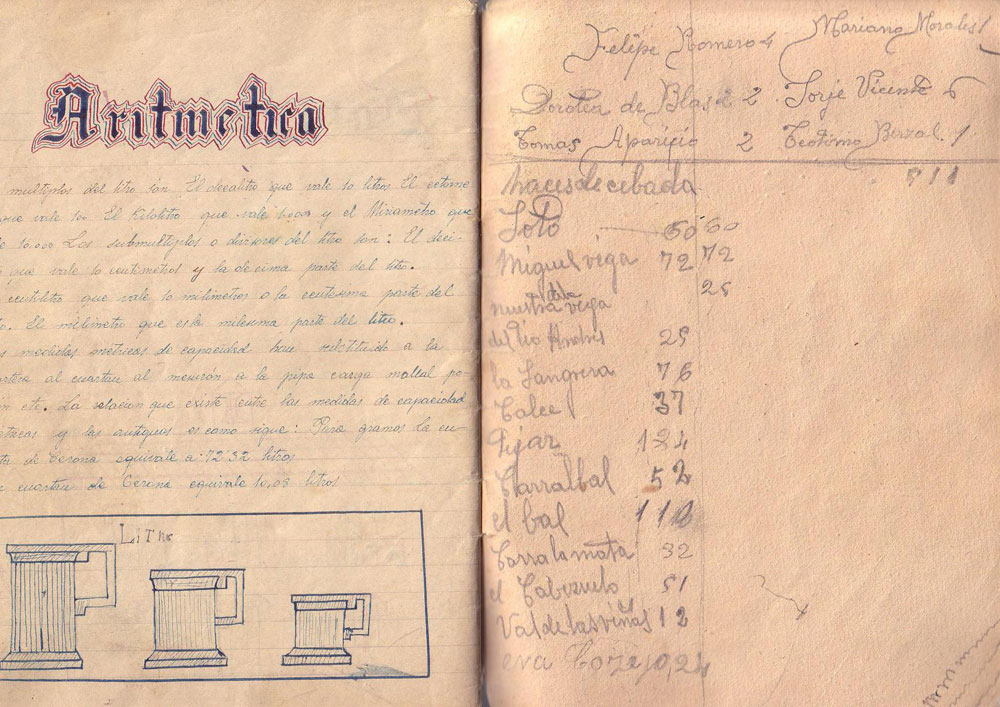 Aritmetica
multiplos del litro son. El decalitro que vale 10 litros El
que vale 100. El Kilolitro que vale 1.000 y el Miriametro que
10.000 Los submultiplos o divisiones del litro son: El deci-
que vale 10 centimetros y la decima parte del litro.
centilitro que vale 10 milimetros o la centesima parte del
El milimetro que es la milesima parte del litro.
medidas metricas de capacidad han sustituido a la
al cuartan al mesurón a la pipa carga mallal po-
etc. La relacion que existe entre las medidas de capacidad
y las antiguas es como sigue: Para gramos la cu-
de Gerona equivale a: 72 32 litros
cuartan de Gerona equivale 10,08 litros
LiTro
Felipe Romero 4 Mariano Morales 1
Dorotea de Blas 2 Jorje Vicente 6
Tomas Aparisio 2 Teotimo Berzal 1
haces de cebada 911
Soto 60 60
Miguel vega 72 72
nuestra vega 25
del tio Andres 25
la Sangrera 76
37
Pijar 124
Carralbal 52
el bal 110
Carralamata 32
el Cabezuelo 51
Valdelasviñas 12
24